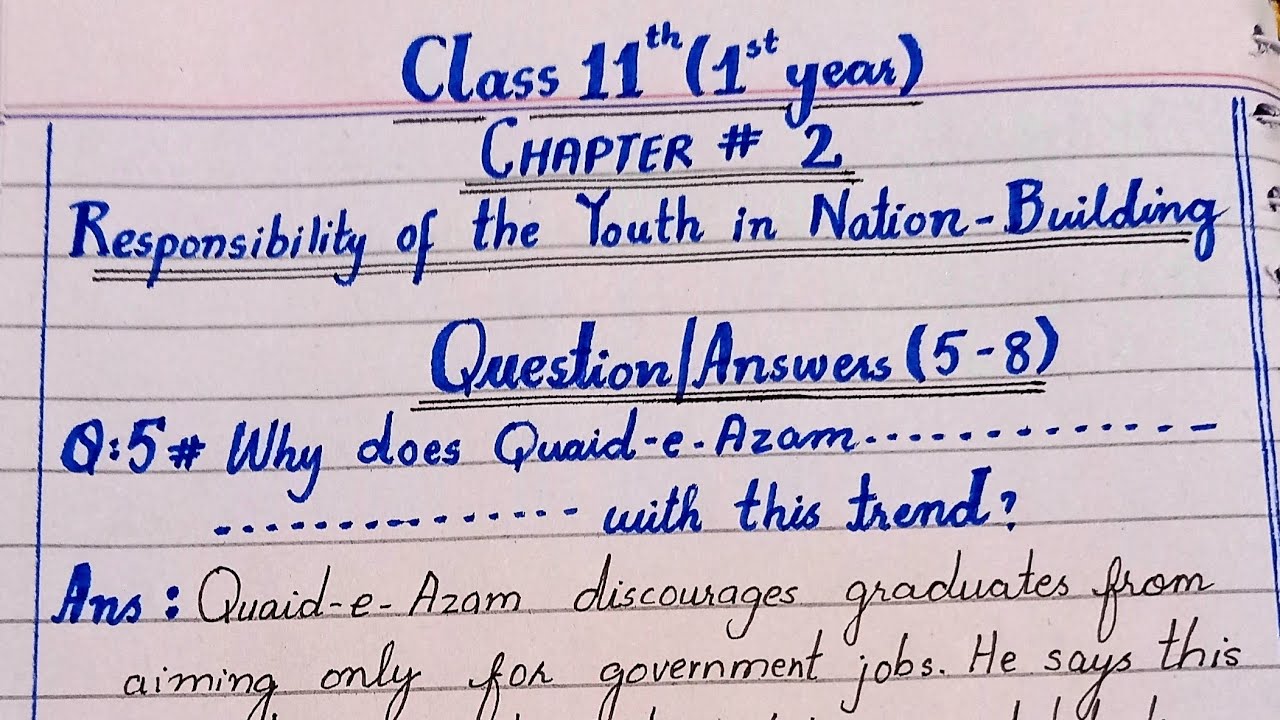 Class 11th (1st year)
CHAPTER # 2
Responsibility of the Youth in Nation-Building
Question/Answers (5-8)
Q:5# Why does Quaid-e-Azam.............
............... with this trend?
Ans: Quaid-e-Azam discourages graduates from
aiming only for government jobs. He says this